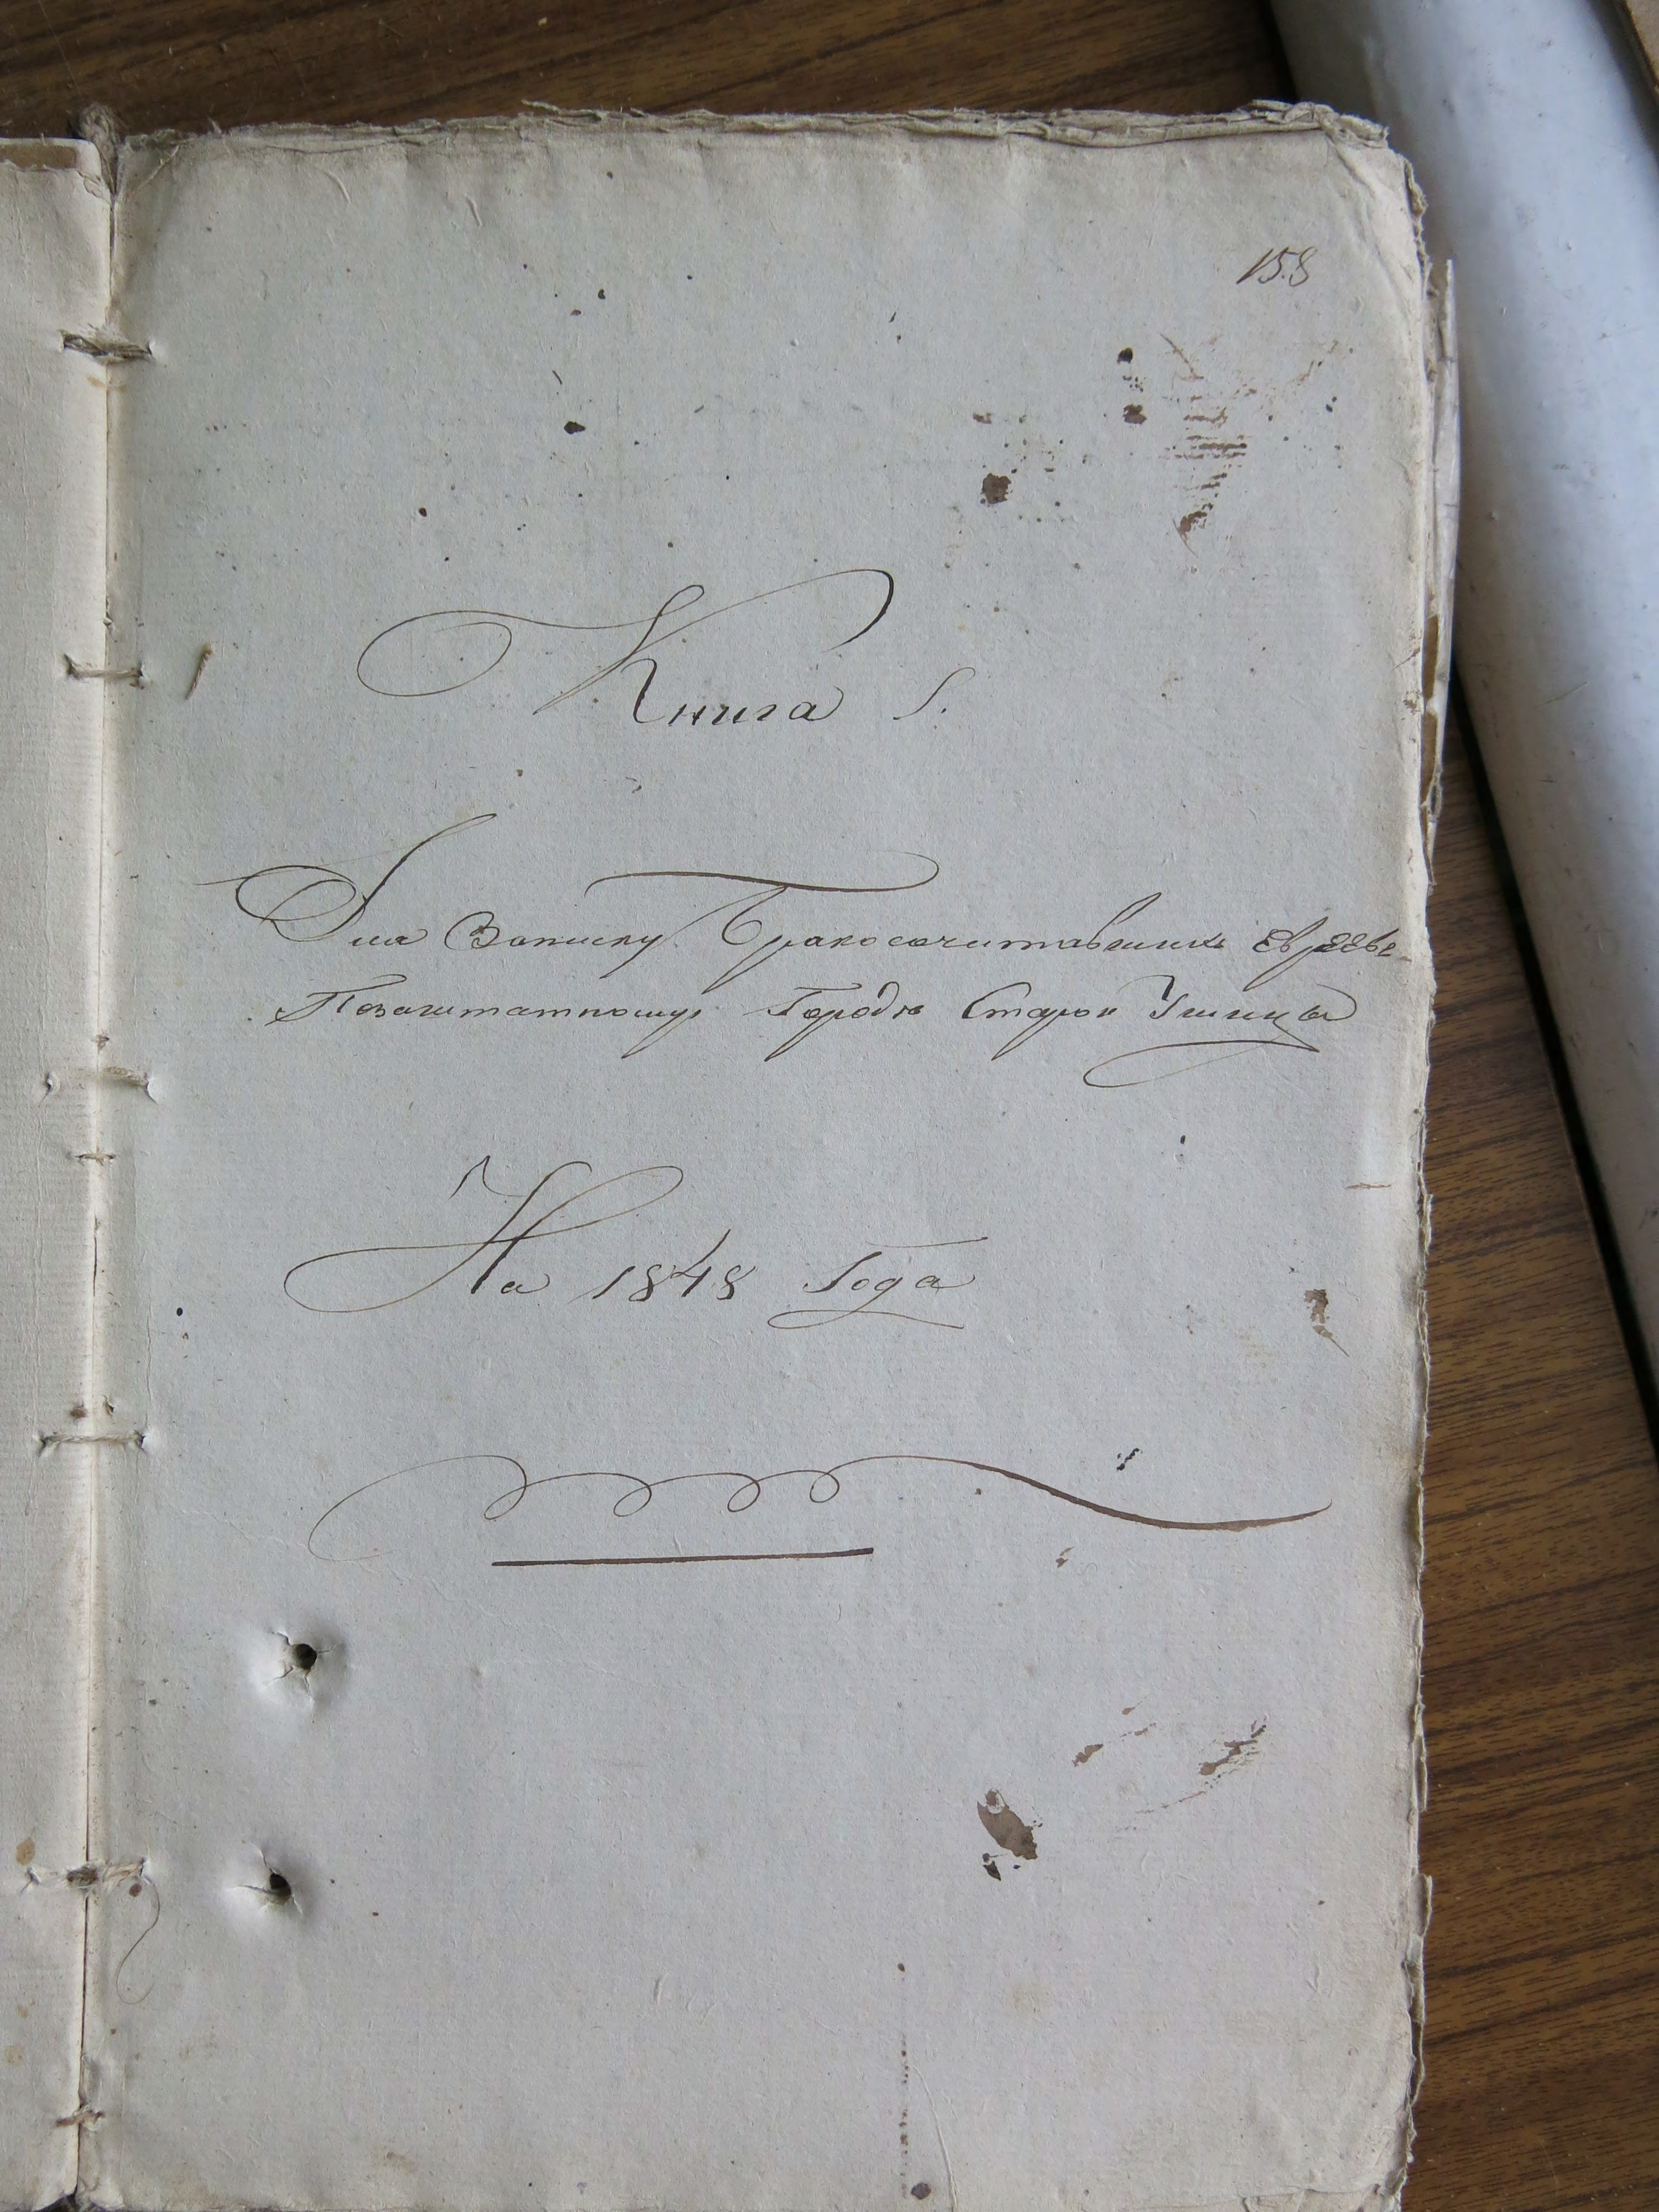 158
Книга 1.
Для Записку Бракосочитавшихъ Евреевъ
Позаштатному Городу Старой Ушицы
На 1848 Года